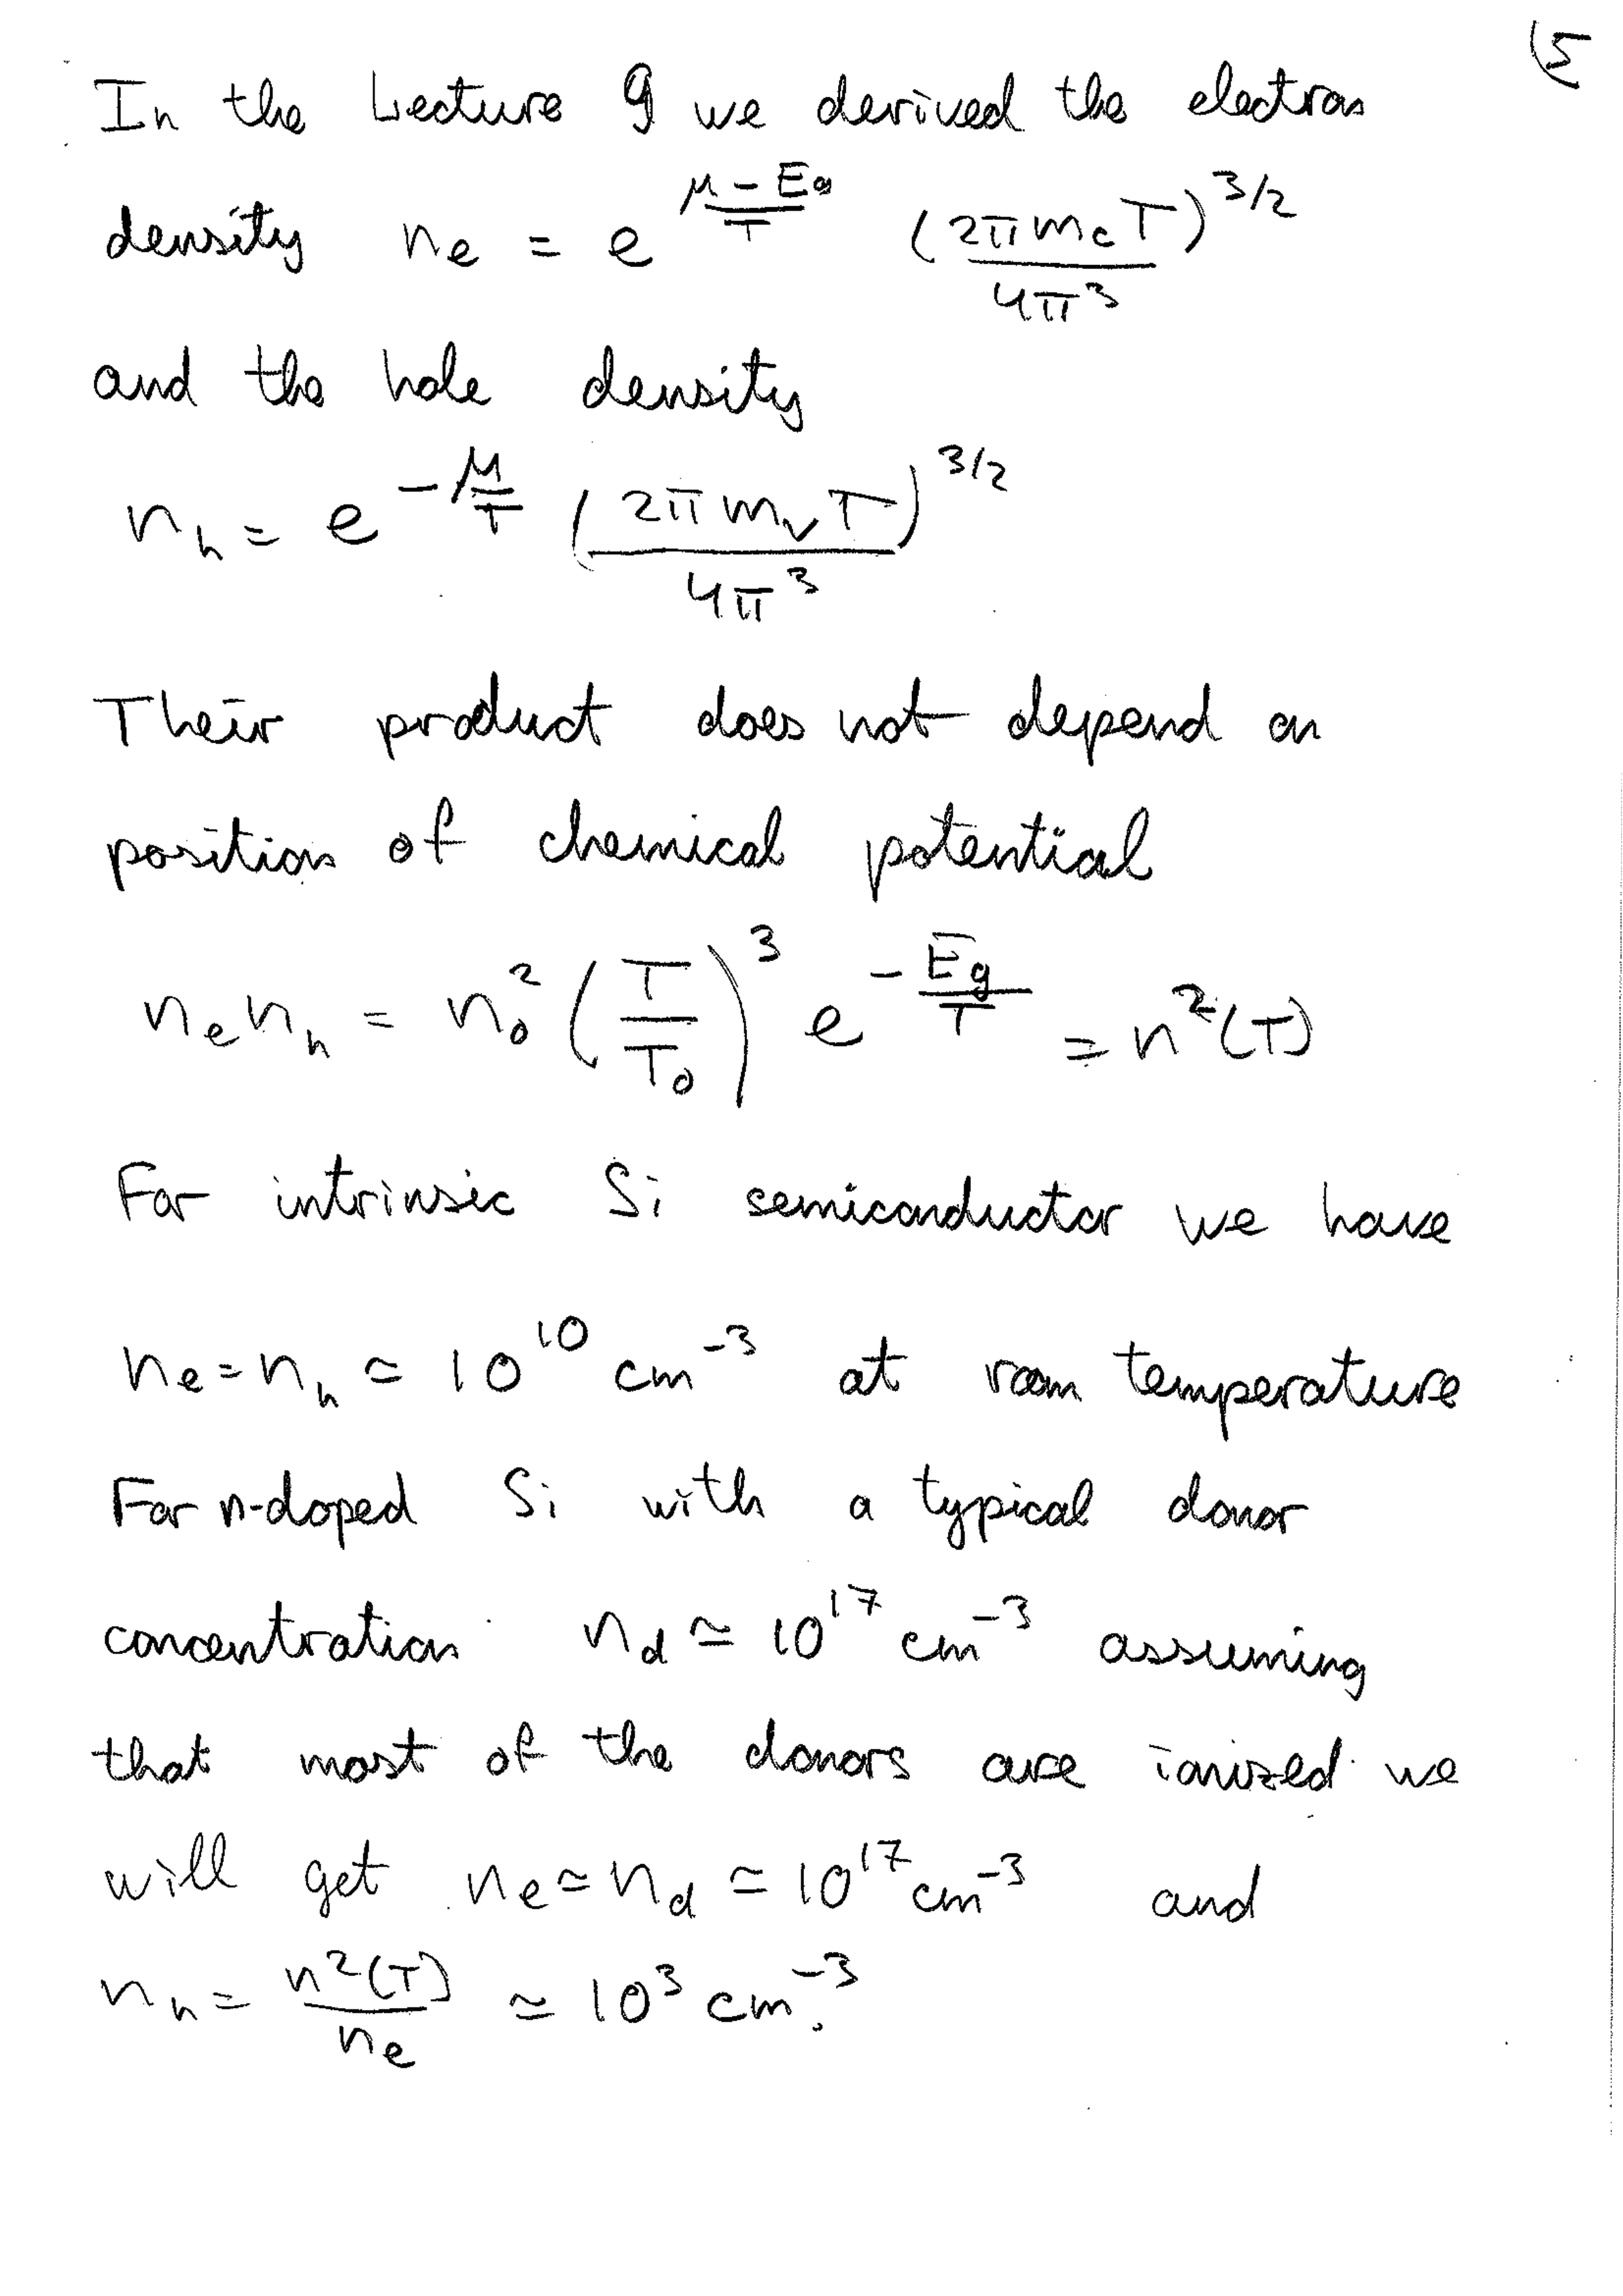 (5
In the Lecture 9 we derived the electron
density n_e = e^{\frac{μ - E_g}{T}} \frac{(2π m_c T)^{3/2}}{4π^3}
and the hole density
n_h = e^{-\frac{μ}{T}} \frac{(2π m_v T)^{3/2}}{4π^3}
Their product does not depend on
position of chemical potential
n_e n_h = n_0^2 (\frac{T}{T_0})^3 e^{-\frac{E_g}{T}} = n^2(T)
For intrinsic Si semiconductor we have
n_e = n_h ≃ 10^{10} cm^{-3} at room temperature
For n-doped Si with a typical donor
concentration n_d ≃ 10^{17} cm^{-3} assuming
that most of the donors are ionized we
will get n_e ≃ n_d ≃ 10^{17} cm^{-3} and
n_h = \frac{n^2(T)}{n_e} ≃ 10^3 cm^{-3}.